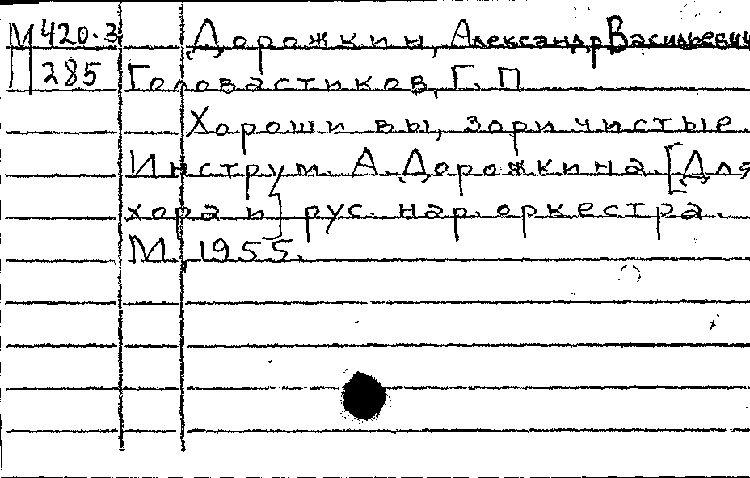 М 420-3 Дорожкин, Александр Васильевич
285 Головастиков, Г. П
Хороши вы, зори чистые.
Инструм. А. Дорожкина. [Для
хора и] рус. нар. оркестра.
М., 1955.